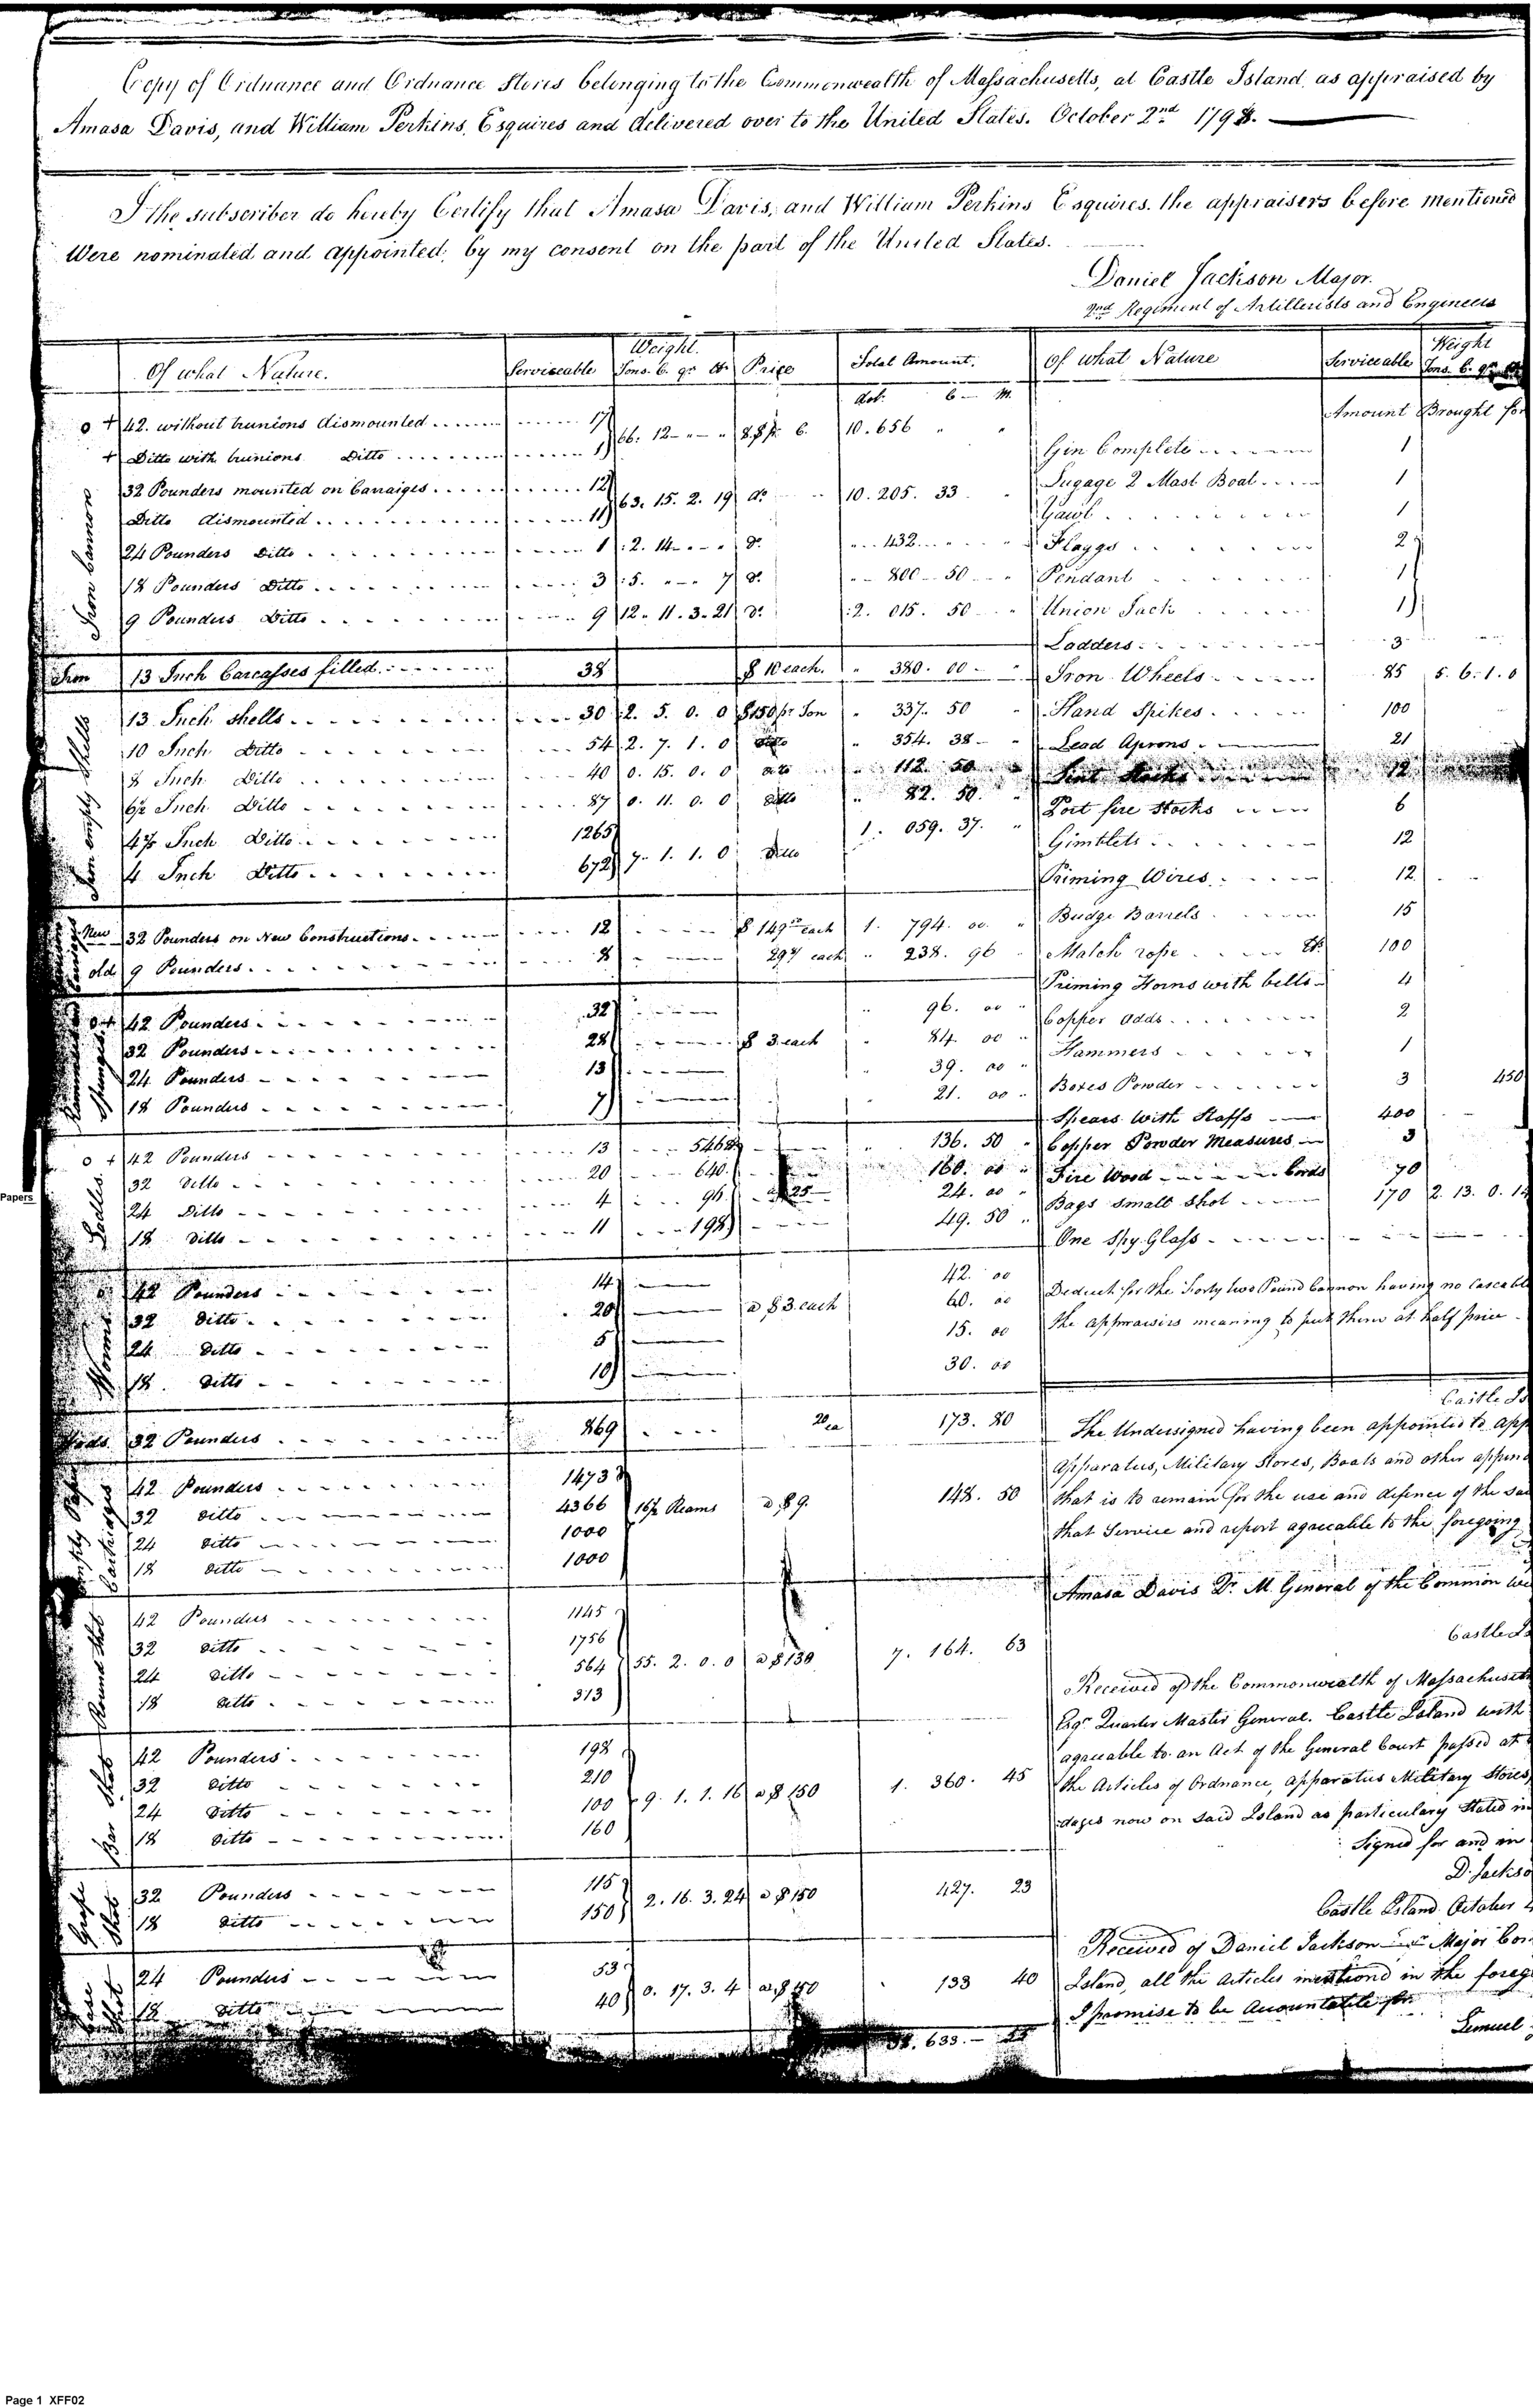 Copy of Ordnance and Ordnance Stores belonging to the Commonwealth of Massachusetts, at Castle Island, as appraised by
Amasa Davis, and William Perkins, Esquires and delivered over to the United States. October 2nd 1798.
I the subscriber do hereby Certify that Amasa Davis, and William Perkins Esquires. the appraisers before mentioned
Were nominated and appointed, by my consent on the part of the United States.
Daniel Jackson Major.
2nd Regiment of Artillerists and Engineers
Of what Nature. Serviceable Weight. Tons. C. qr. lb. Price Total Amount.
Dol. C M.
Iron Cannon
o + 42. without trunions dismounted 17 66. 12 " " 10.656 " "
+ Ditto with trunions Ditto 1
32 Pounders mounted on Carraiges 12 63. 15. 2. 19 do 10. 205. 33
Ditto dismounted 11
24 Pounders Ditto 1 2. 14 " " do 432
18 Pounders Ditto 3 5. " " 7 do 800 50
9 Pounders Ditto 9 12. 11. 3. 21 do 2. 015. 50
Iron 13 Inch Carcasses filled 38 $ 10 each. 380. 00
Iron empty Shells
13 Inch shells 30 2. 5. 0. 0 $150 pr Ton 337. 50
10 Inch Ditto 54 2. 7. 1. 0 Ditto 354. 38
8 Inch Ditto 40 0. 15. 0. 0 Ditto 112. 50
6½ Inch Ditto 87 0. 11. 0. 0 Ditto 82. 50
4⅖ Inch Ditto 1265 1. 059. 37.
4 Inch Ditto 672 7. 1. 1. 0 Ditto
New 32 Pounders on New Constructions 12 $ 149 50 each 1. 794. 00
old 9 Pounders 8 29 each 238. 96
o + 42 Pounders 32 96. 00
32 Pounders 28 $ 3 each 84. 00
24 Pounders 13 39. 00
18 Pounders 7 21. 00
Ladles
o + 42 Pounders 13 546 136. 50
32 Ditto 20 640 160. 00
24 Ditto 4 96 25 24. 00
18 Ditto 11 198 49. 50
Worms
42 Pounders 14 42. 00
32 Ditto 20 a $3. each 60. 00
24 Ditto 5 15. 00
18. Ditto 10 30. 00
32 Pounders 869 20 ea 173. 80
Empty Paper Cartridges
42 Pounders 1473
32 ditto 4366 16½ Reams a $ 9. 148. 50
24 ditto 1000
18 ditto 1000
Round Shot
42 Pounders 1145
32 ditto 1756
24 ditto 564 55. 2. 0. 0 a $130 7. 164. 63
18 ditto 313
Bar Shot
42 Pounders 198
32 ditto 210
24 ditto 100 9. 1. 1. 16 a $ 150 1. 360. 45
18 ditto 160
Grape Shot
32 Pounders 115 2. 16. 3. 24 a $ 150 427. 23
18 ditto 150
Case Shot
24 Pounders 53 0. 17. 3. 4 133 40
18 ditto 40
633.
Of what Nature Serviceable Weight Tons. C. qr.
Amount Brought for
Gin Complete 1
Lugage 2 Mast Boat 1
Yawl 1
Flaggs 2
Pendant 1
Union Jack 1
Ladders 3
Iron Wheels 85 5. 6. 1. 0
Hand Spikes 100
Lead Aprons 21
Lint Stocks 12
Port fire Stocks 6
Gimblets 12
Priming Wires 12
Budge Barrels 15
Match rope lb. 100
Priming Horns with bells 4
Copper Adds 2
Hammers 1
Boxes Powder 3 450
Spears With Staffs 400
Copper Powder Measures 3
Fire Wood Cords 70
Bags Small Shot 170 2. 13. 0. 14
One Spy Glass
Deduct for the Forty two Pound Cannon having no Cascable
the appraisers meaning to put them at half price
Castle Is
The Undersigned having been appointed to app
Apparatus, Military Stores, Boats and other appen
that is to remain for the use and defence of the sai
that Service and report agreeable to the foregoing
Amasa Davis Qr. M. General of the Common we
Castle Is
Received of the Commonwealth of Massachusetts
Esqr. Quarter Master General. Castle Island with
agreeable to an Act of the General Court passed at
the Articles of Ordnance, Apparatus Military Stores,
dages now on said Island as particulary Stated in
Signed for and in
D. Jackso
Castle Island October 2
Received of Daniel Jackson Major Com
Island, all the Articles mentiond in the foreg
I promise to be Accountable for.
Lemuel
Papers
Page 1 XFF02